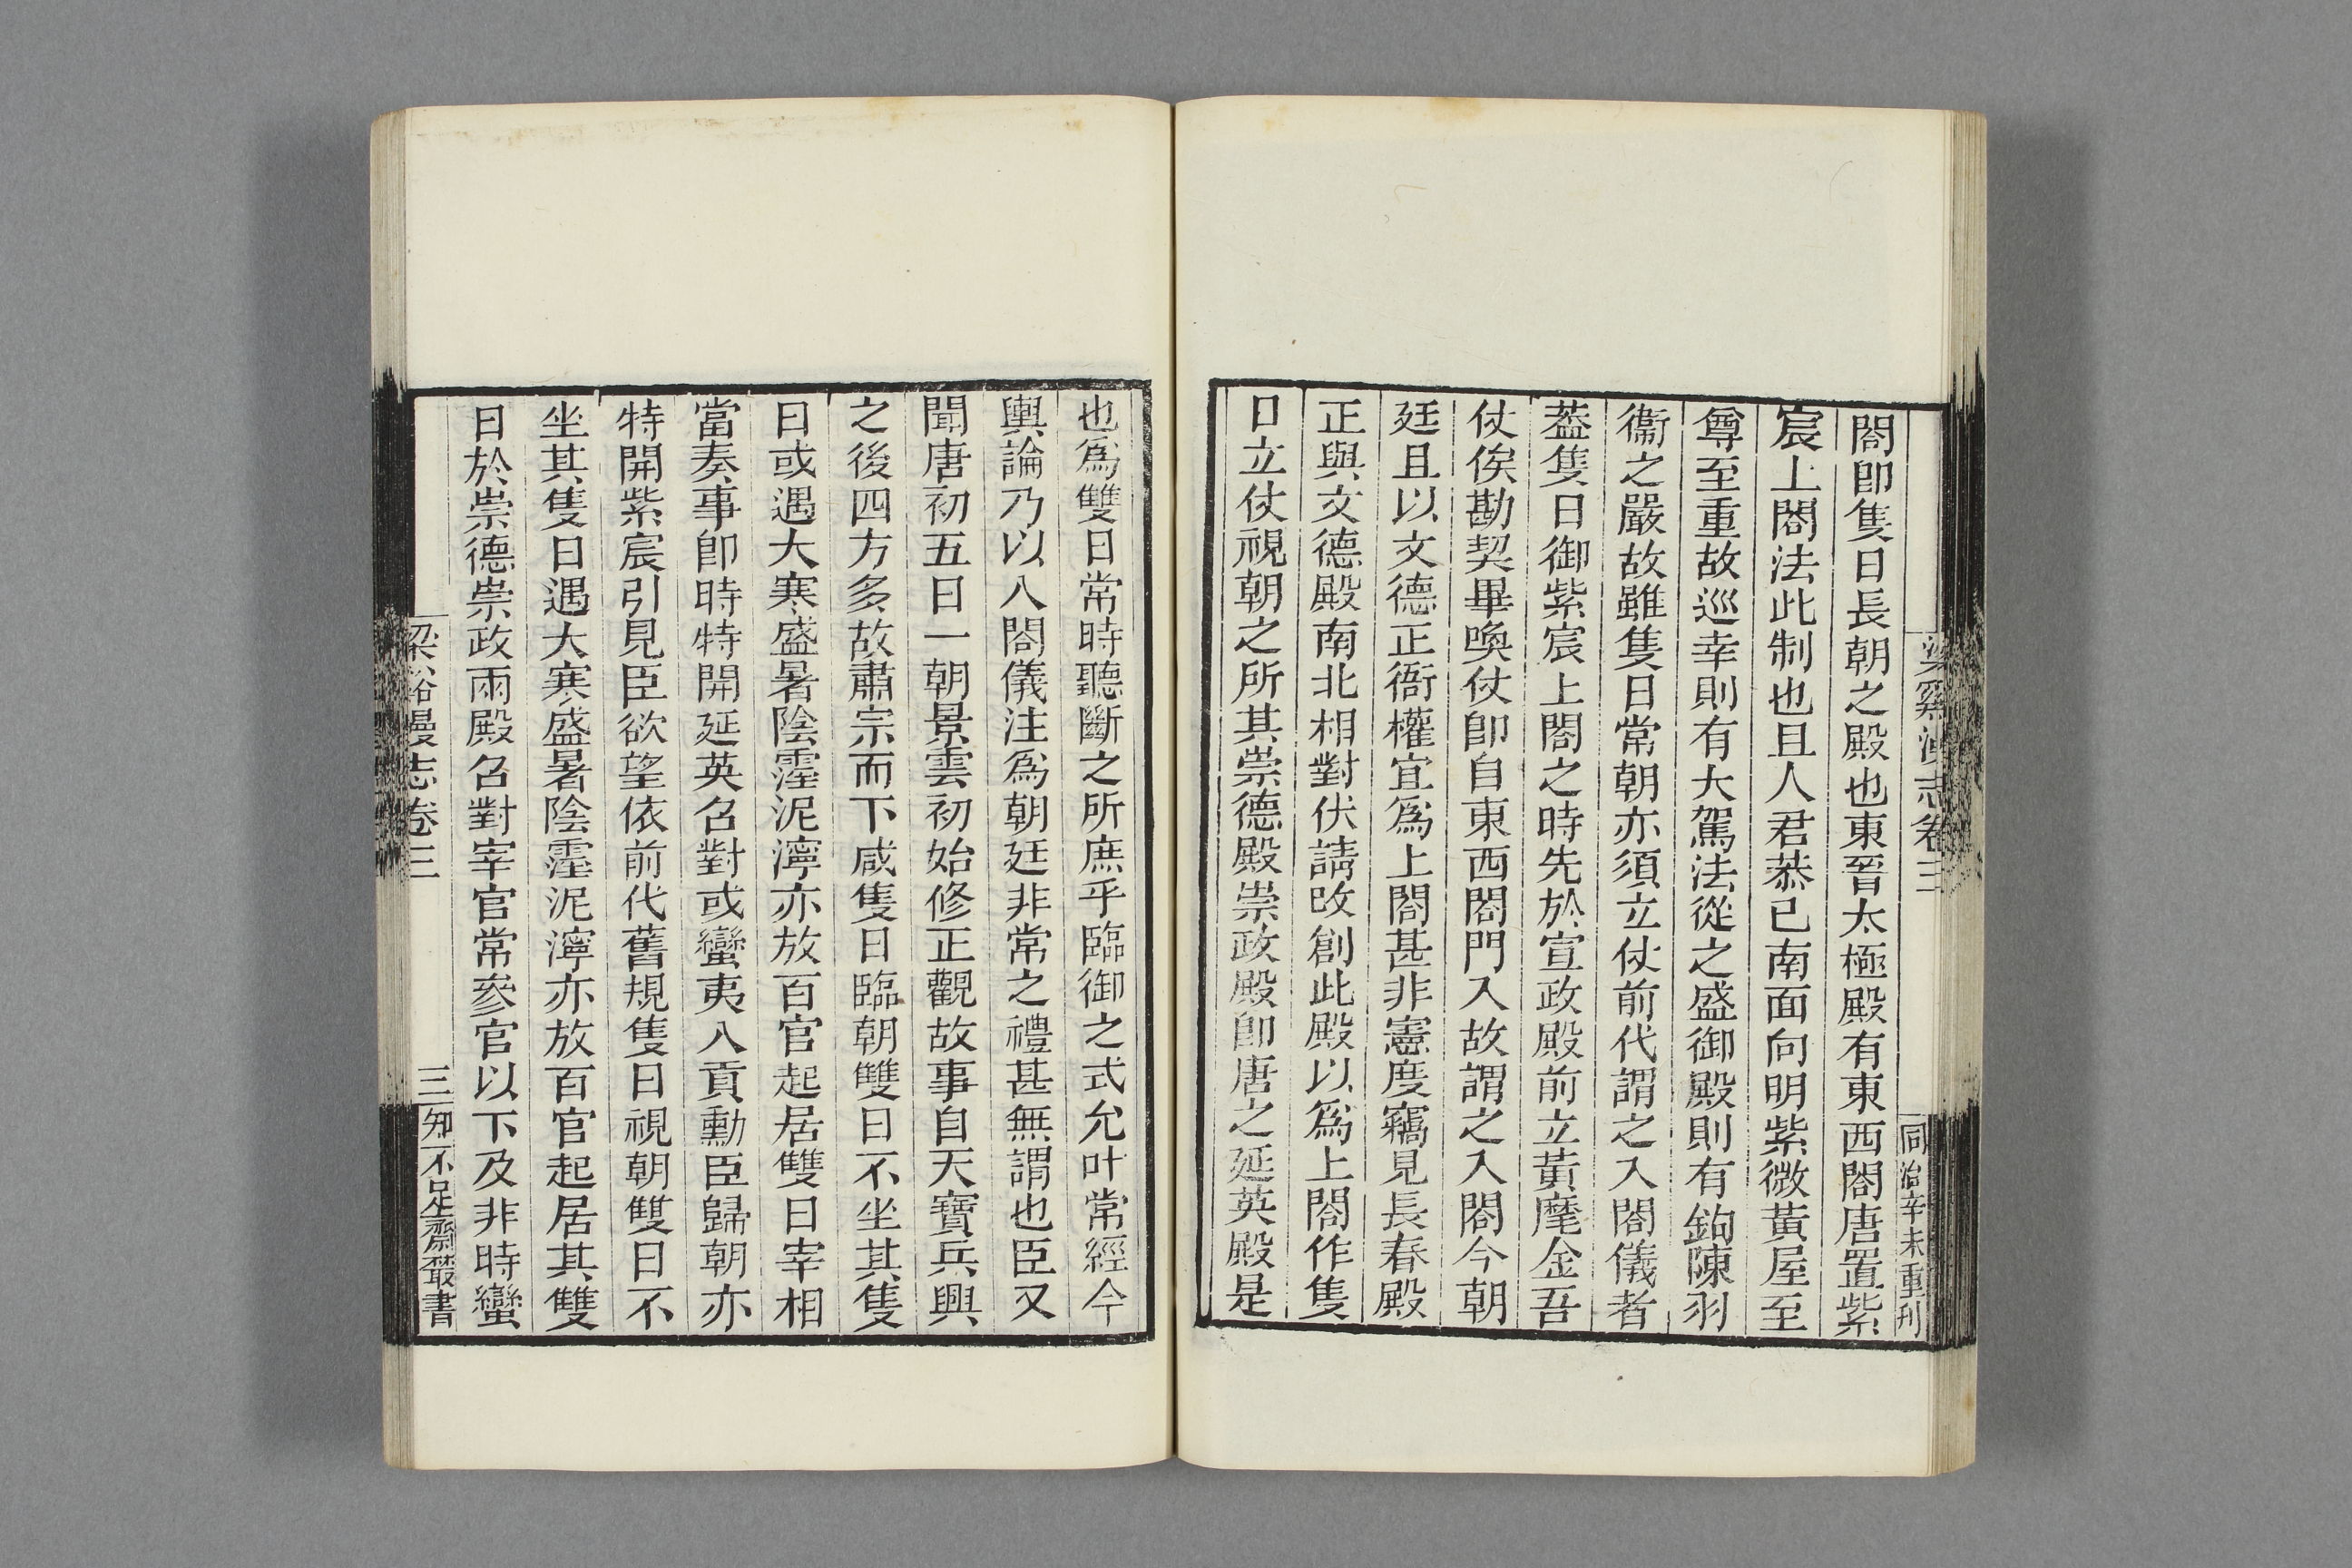 梁谿漫志卷三
同治辛未重刊
閤卽隻日長朝之殿也東晉太極殿有東西閤唐置紫
宸上閤法此制也且人君恭己南面向明紫微黃屋至
尊至重故巡幸則有大駕法從之盛御殿則有鉤陳羽
衞之嚴故雖隻日常朝亦須立仗前代謂之入閤儀者
葢隻日御紫宸上閤之時先於宣政殿前立黃麾金吾
仗俟勘契畢喚仗卽自東西閤門入故謂之入閤今朝
廷且以文德正衙權宜爲上閤甚非憲度竊見長春殿
正與文德殿南北相對伏請改創此殿以爲上閤作隻
日立仗視朝之所其崇德殿崇政殿卽唐之延英殿是
也爲雙日常時聽斷之所庶乎臨御之式允叶常經今
輿論乃以入閤儀注爲朝廷非常之禮甚無謂也臣又
聞唐初五日一朝景雲初始修正觀故事自天寶兵興
之後四方多故肅宗而下咸隻日臨朝雙日不坐其隻
日或遇大寒盛暑陰霪泥濘亦放百官起居雙日宰相
當奏事卽時特開延英召對或蠻夷入貢勳臣歸朝亦
特開紫宸引見臣欲望依前代舊規隻日視朝雙日不
坐其隻日遇大寒盛暑陰霪泥濘亦放百官起居其雙
日於崇德崇政兩殿召對宰官常參官以下及非時蠻
梁谿漫志卷三
三
知不足齋叢書